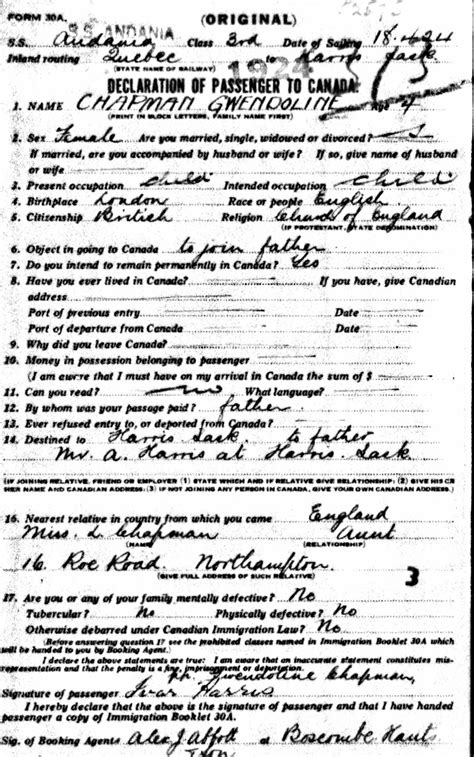 FORM 30A. (ORIGINAL)
S.S. ANDANIA
S.S. Andania Class 3rd Date of Sailing 18.4.24
Inland routing Quebec to Harris Sask.
(STATE NAME OF RAILWAY) 1924
DECLARATION OF PASSENGER TO CANADA
1. NAME CHAPMAN GWENDOLINE Age 4
(PRINT IN BLOCK LETTERS, FAMILY NAME FIRST)
2. Sex Female Are you married, single, widowed or divorced? S
If married, are you accompanied by husband or wife? If so, give name of husband
or wife
3. Present occupation Child Intended occupation Child
4. Birthplace London Race or people English
5. Citizenship British Religion Church of England
(IF PROTESTANT, STATE DENOMINATION)
6. Object in going to Canada to join father
7. Do you intend to remain permanently in Canada? Yes
8. Have you ever lived in Canada? If you have, give Canadian
address Date
Port of previous entry Date
Port of departure from Canada Date
9. Why did you leave Canada?
10. Money in possession belonging to passenger
(I am aware that I must have on my arrival in Canada the sum of $
11. Can you read? no What language?
12. By whom was your passage paid? father
13. Ever refused entry to, or deported from Canada?
14. Destined to Harris Sask. to father
Mr. A. Harris at Harris. Sask
(IF JOINING RELATIVE, FRIEND OR EMPLOYER (1) STATE WHICH AND IF RELATIVE GIVE RELATIONSHIP: (2) GIVE HIS OR
HER NAME AND CANADIAN ADDRESS: (3) IF NOT JOINING ANY PERSON IN CANADA, GIVE YOUR OWN CANADIAN ADDRESS.)
16. Nearest relative in country from which you came England
Miss. L. Chapman Aunt
(NAME) (RELATIONSHIP)
16. Roe Road. Northampton.
(GIVE FULL ADDRESS OF SUCH RELATIVE) 3
17. Are you or any of your family mentally defective? No
Tubercular? No Physically defective? No
Otherwise debarred under Canadian Immigration Law? No
(Before answering question 17 see the prohibited classes named in Immigration Booklet 30A which
will be handed to you by Booking Agent.)
I declare the above statements are true: I am aware that an inaccurate statement constitutes mis-
representation and that the penalty is a fine, imprisonment or deportation.
pp. Gwendoline Chapman,
Signature of passenger Ivar Harris
I hereby declare that the above is the signature of passenger and that I have handed
passenger a copy of Immigration Booklet 30A.
Sig. of Booking Agents Alex J. Abbott at Boscombe Hants